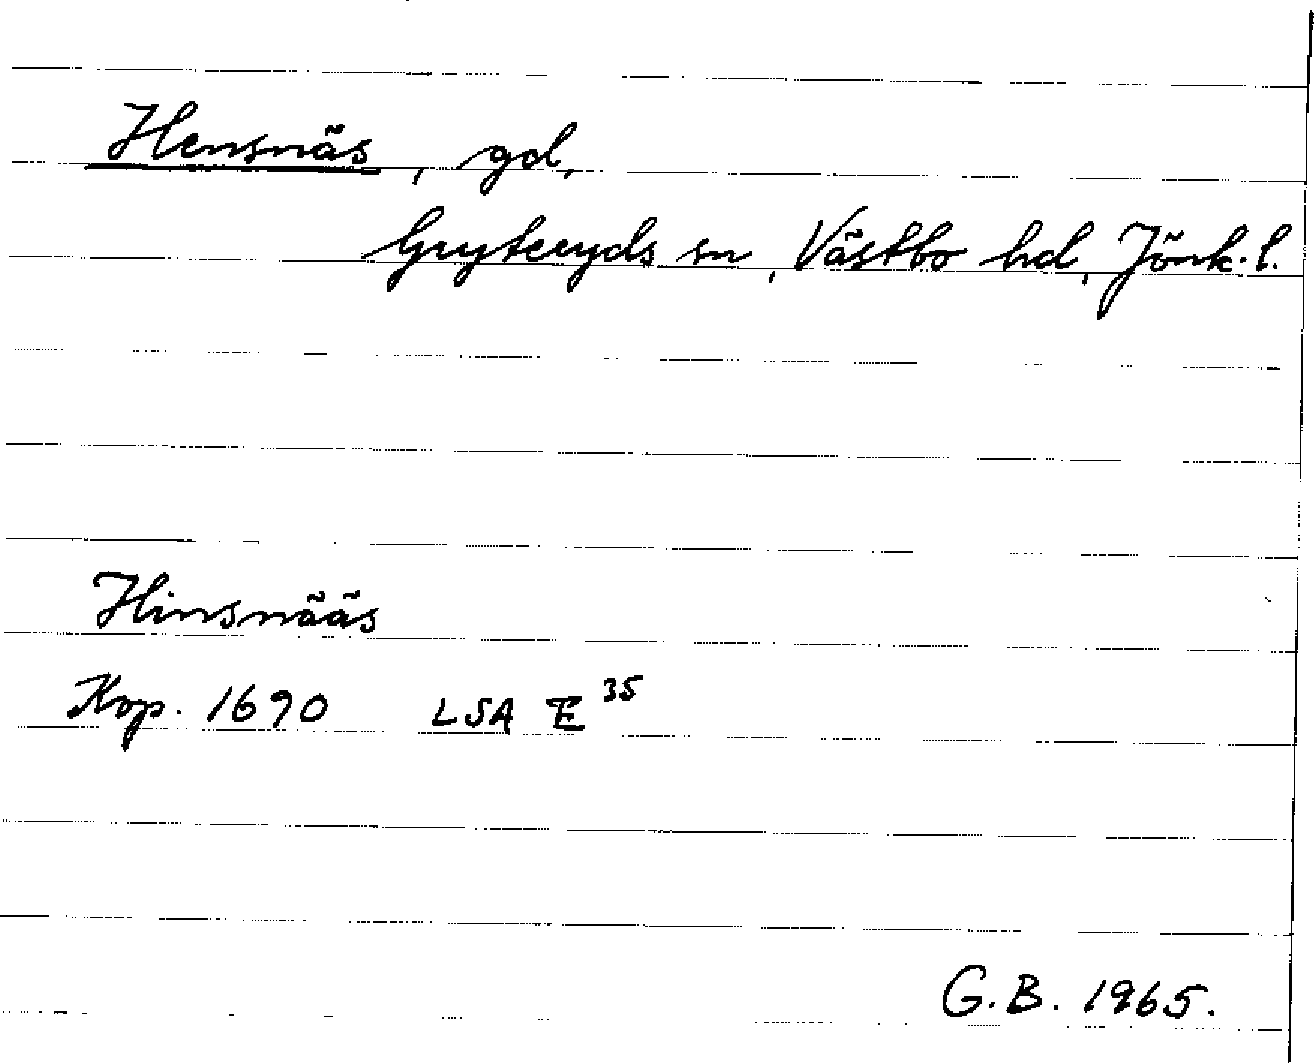 Hensnäs, gd,
Gryteryds sn, Västbo hd, Jönk. l.
Hinsnääs
Kop. 1690 LSA E 35
G.B. 1965.